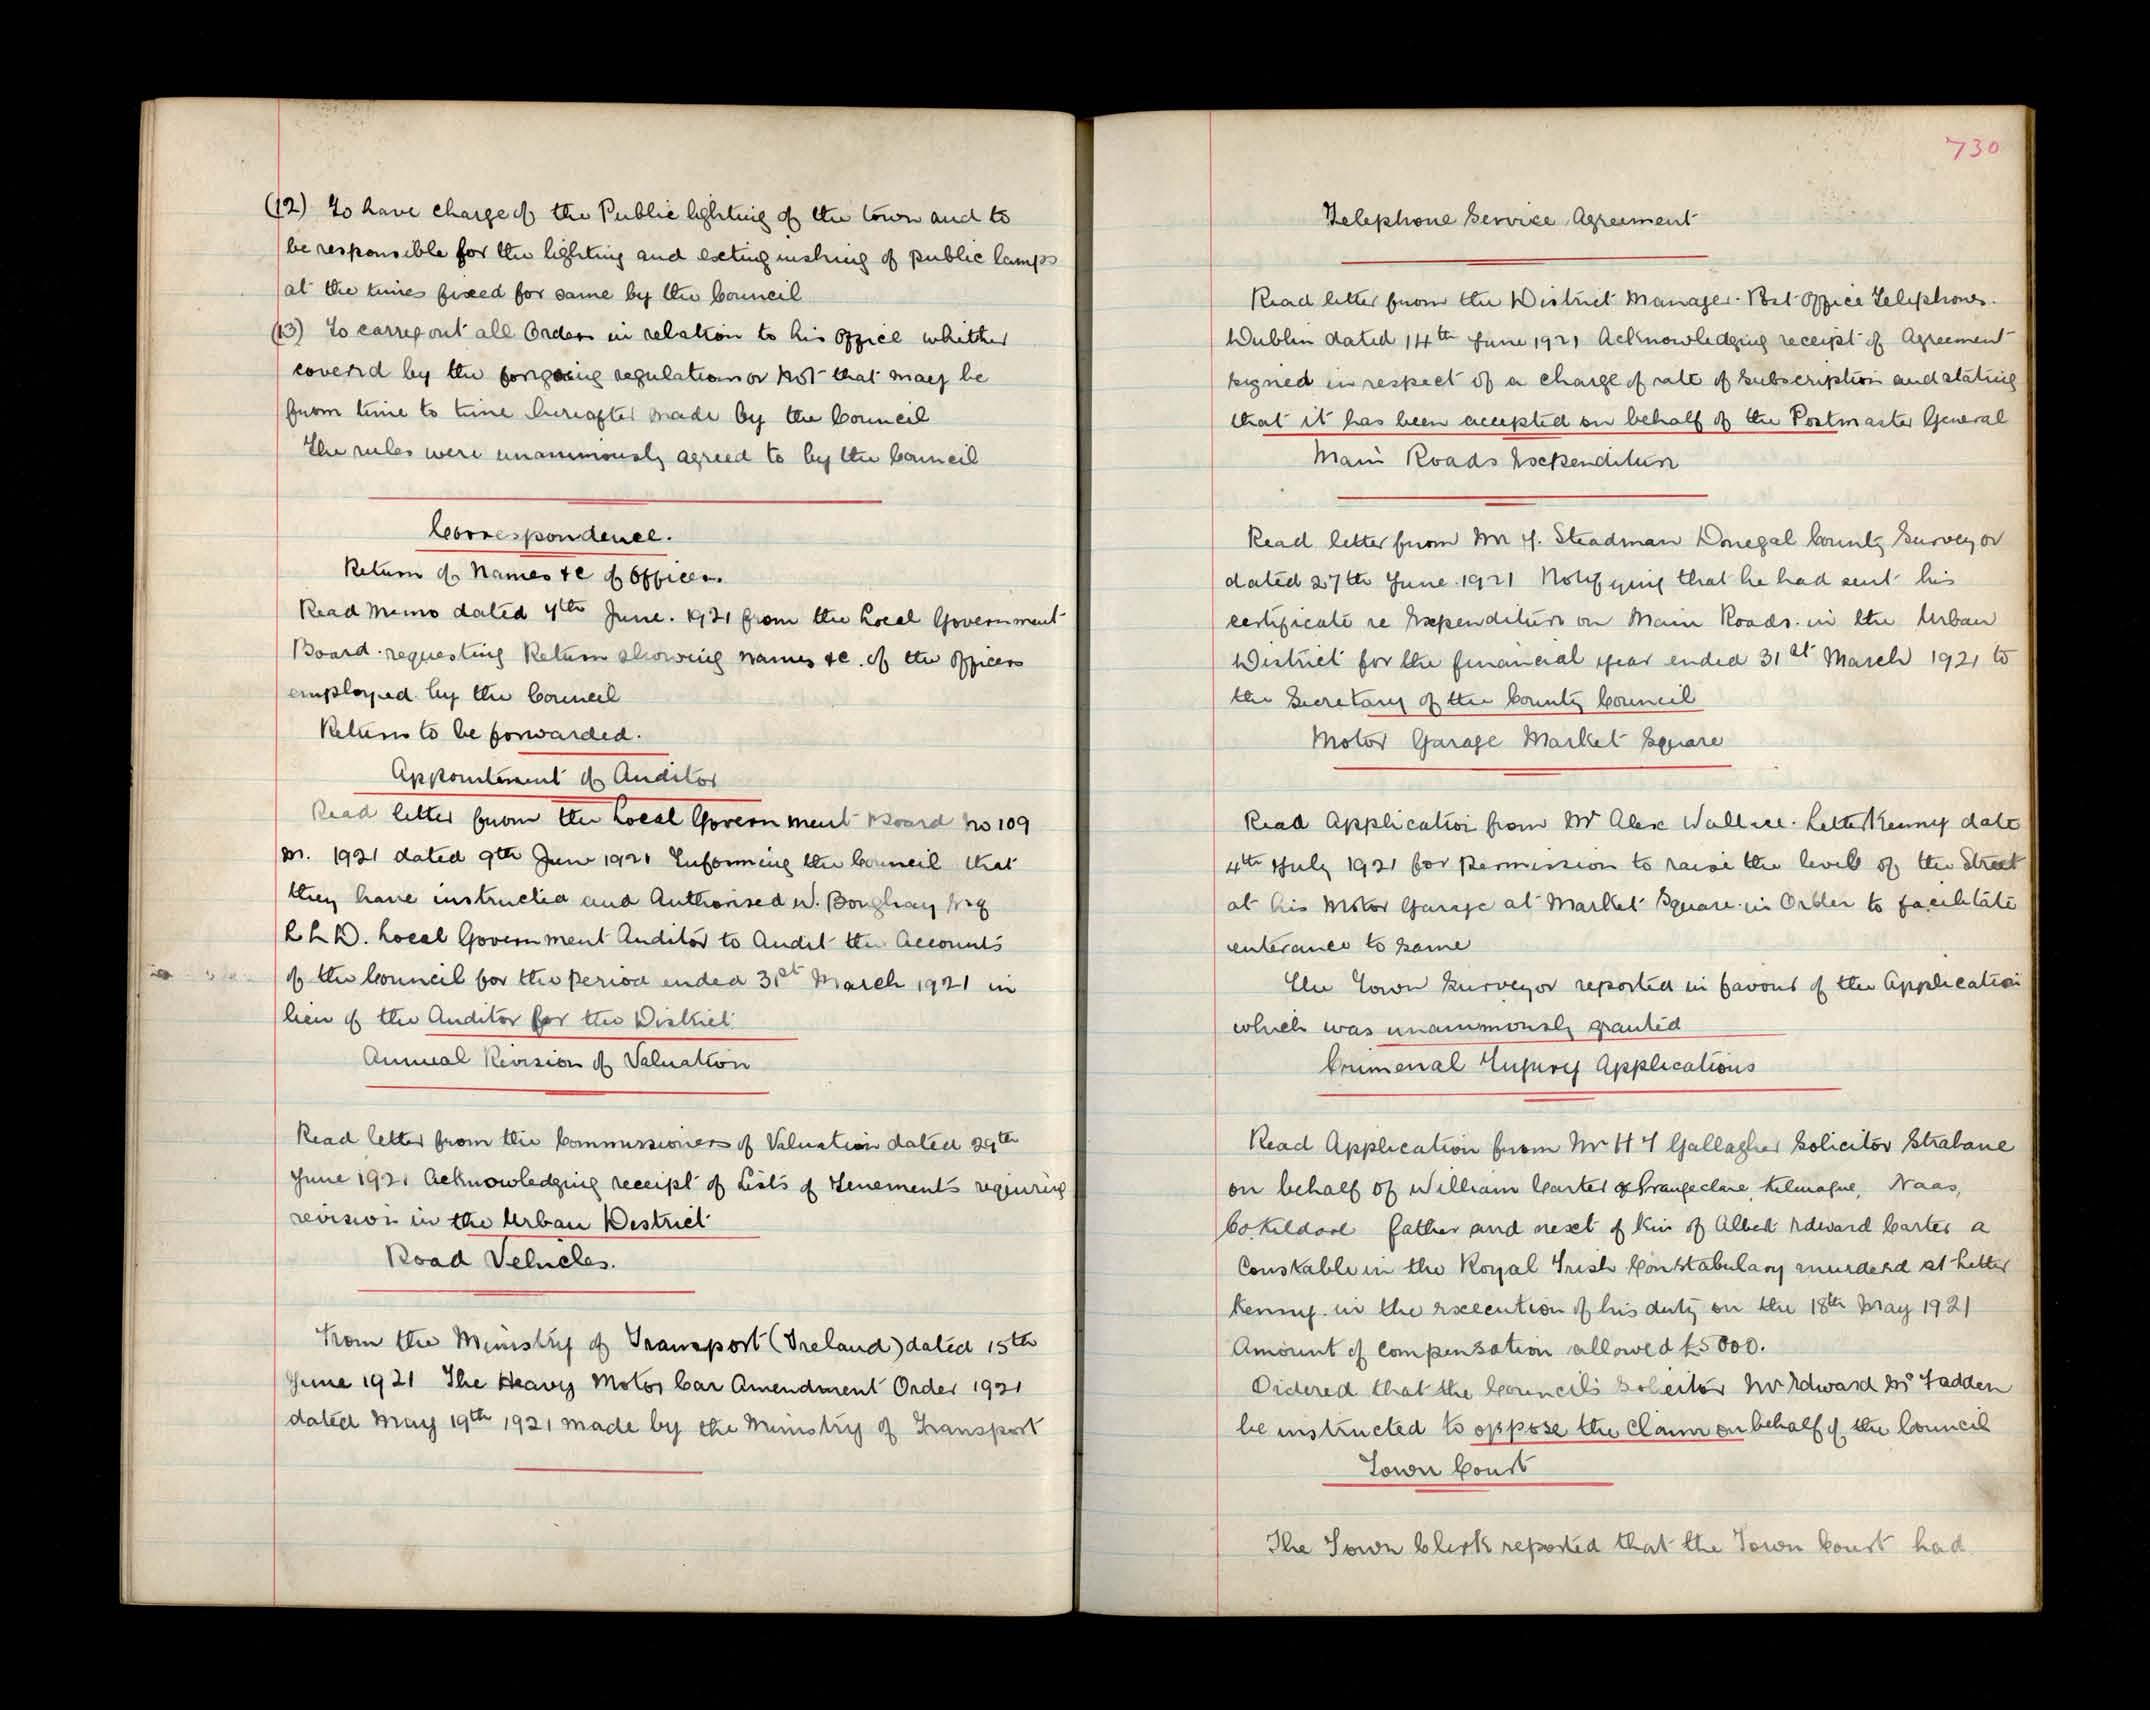 (12) To have charge of the Public lighting of the town and to
be responsible for the lighting and extinguishing of public lamps
at the times fixed for same by the Council
(13) To carry out all Orders in relation to his office whither
coverd by the forgoing regulations or Not that may be
from time to time hereafter made by the Council
The rules were unanimously agreed to by the Council
Correspondence.
Return of Names &c of Officers.
Read Memo dated 4th June. 1921 from the Local Government
Board requesting Return showing names &c. of the officers
employed by the Council
Return to be forwarded.
Appointment of Auditor
Read letter from the Local Government Board No 109
M. 1921 dated 9th June 1921 Informing the Council that
they have instructed and Authorised W. Esq
L L D. Local Government Auditor to Audit the Accounts
of the Council for the period ended 31st March 1921 in
lieu of the Auditor for the District
Annual Revision of Valuation
Read letter from the Commissioners of Valuation dated 29th
June 1921 Acknowledging receipt of Lists of Tenements requiring
revision in the Urban District
Road Vehicles.
From the Ministry of Transport (Ireland) dated 15th
June 1921 The Heavy Motor Car Amendment Order 1921
dated May 19th 1921 made by the Ministry of Transport
730
Telephone Service Agreement
Read letter from the District Manager. Post Office Telephones.
Dublin dated 14th June 1921 Acknowledging receipt of Agreement
signed in respect of a charge of rate of subscription and stating
that it has been accepted on behalf of the Postmaster General
Main Roads Expenditure
Read letter from Mr Steadman Donegal County Surveyor
dated 27th June 1921 Notifying that he had sent his
certificate re Expenditure on Main Roads in the Urban
District for the financial year ended 31st March 1921 to
the Secretary of the County Council
Motor Garage Market Square
Read Application from Mr Alex Wallace. Letterkenny date
4th July 1921 for permission to raise the levels of the Street
at his Motor Garage at Market Square in Order to facilitate
enterance to same
The Town Surveyor reported in favour of the Application
which was unanimously granted
Crimenal Injury Applications
Read Application from Mr H T Gallagher Solicitor Strabane
on behalf of William Carter of Grangeclare, Kilmague, Naas,
Co. Kildare father and next of Kin of Albert Edward Carter a
Constable in the Royal Irish Constabulary murderd at Letter
kenny in the execution of his duty on the 18th May 1921
Amount of compensation allowed £5000.
Ordered that the Councils Solicitor Mr Edward McFadden
be instructed to oppose the claim on behalf of the Council
Town Court
The Town Clerk reported that the Town Court had